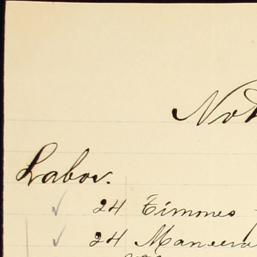 Not
Labor.
24 Timmes
24 Maneera